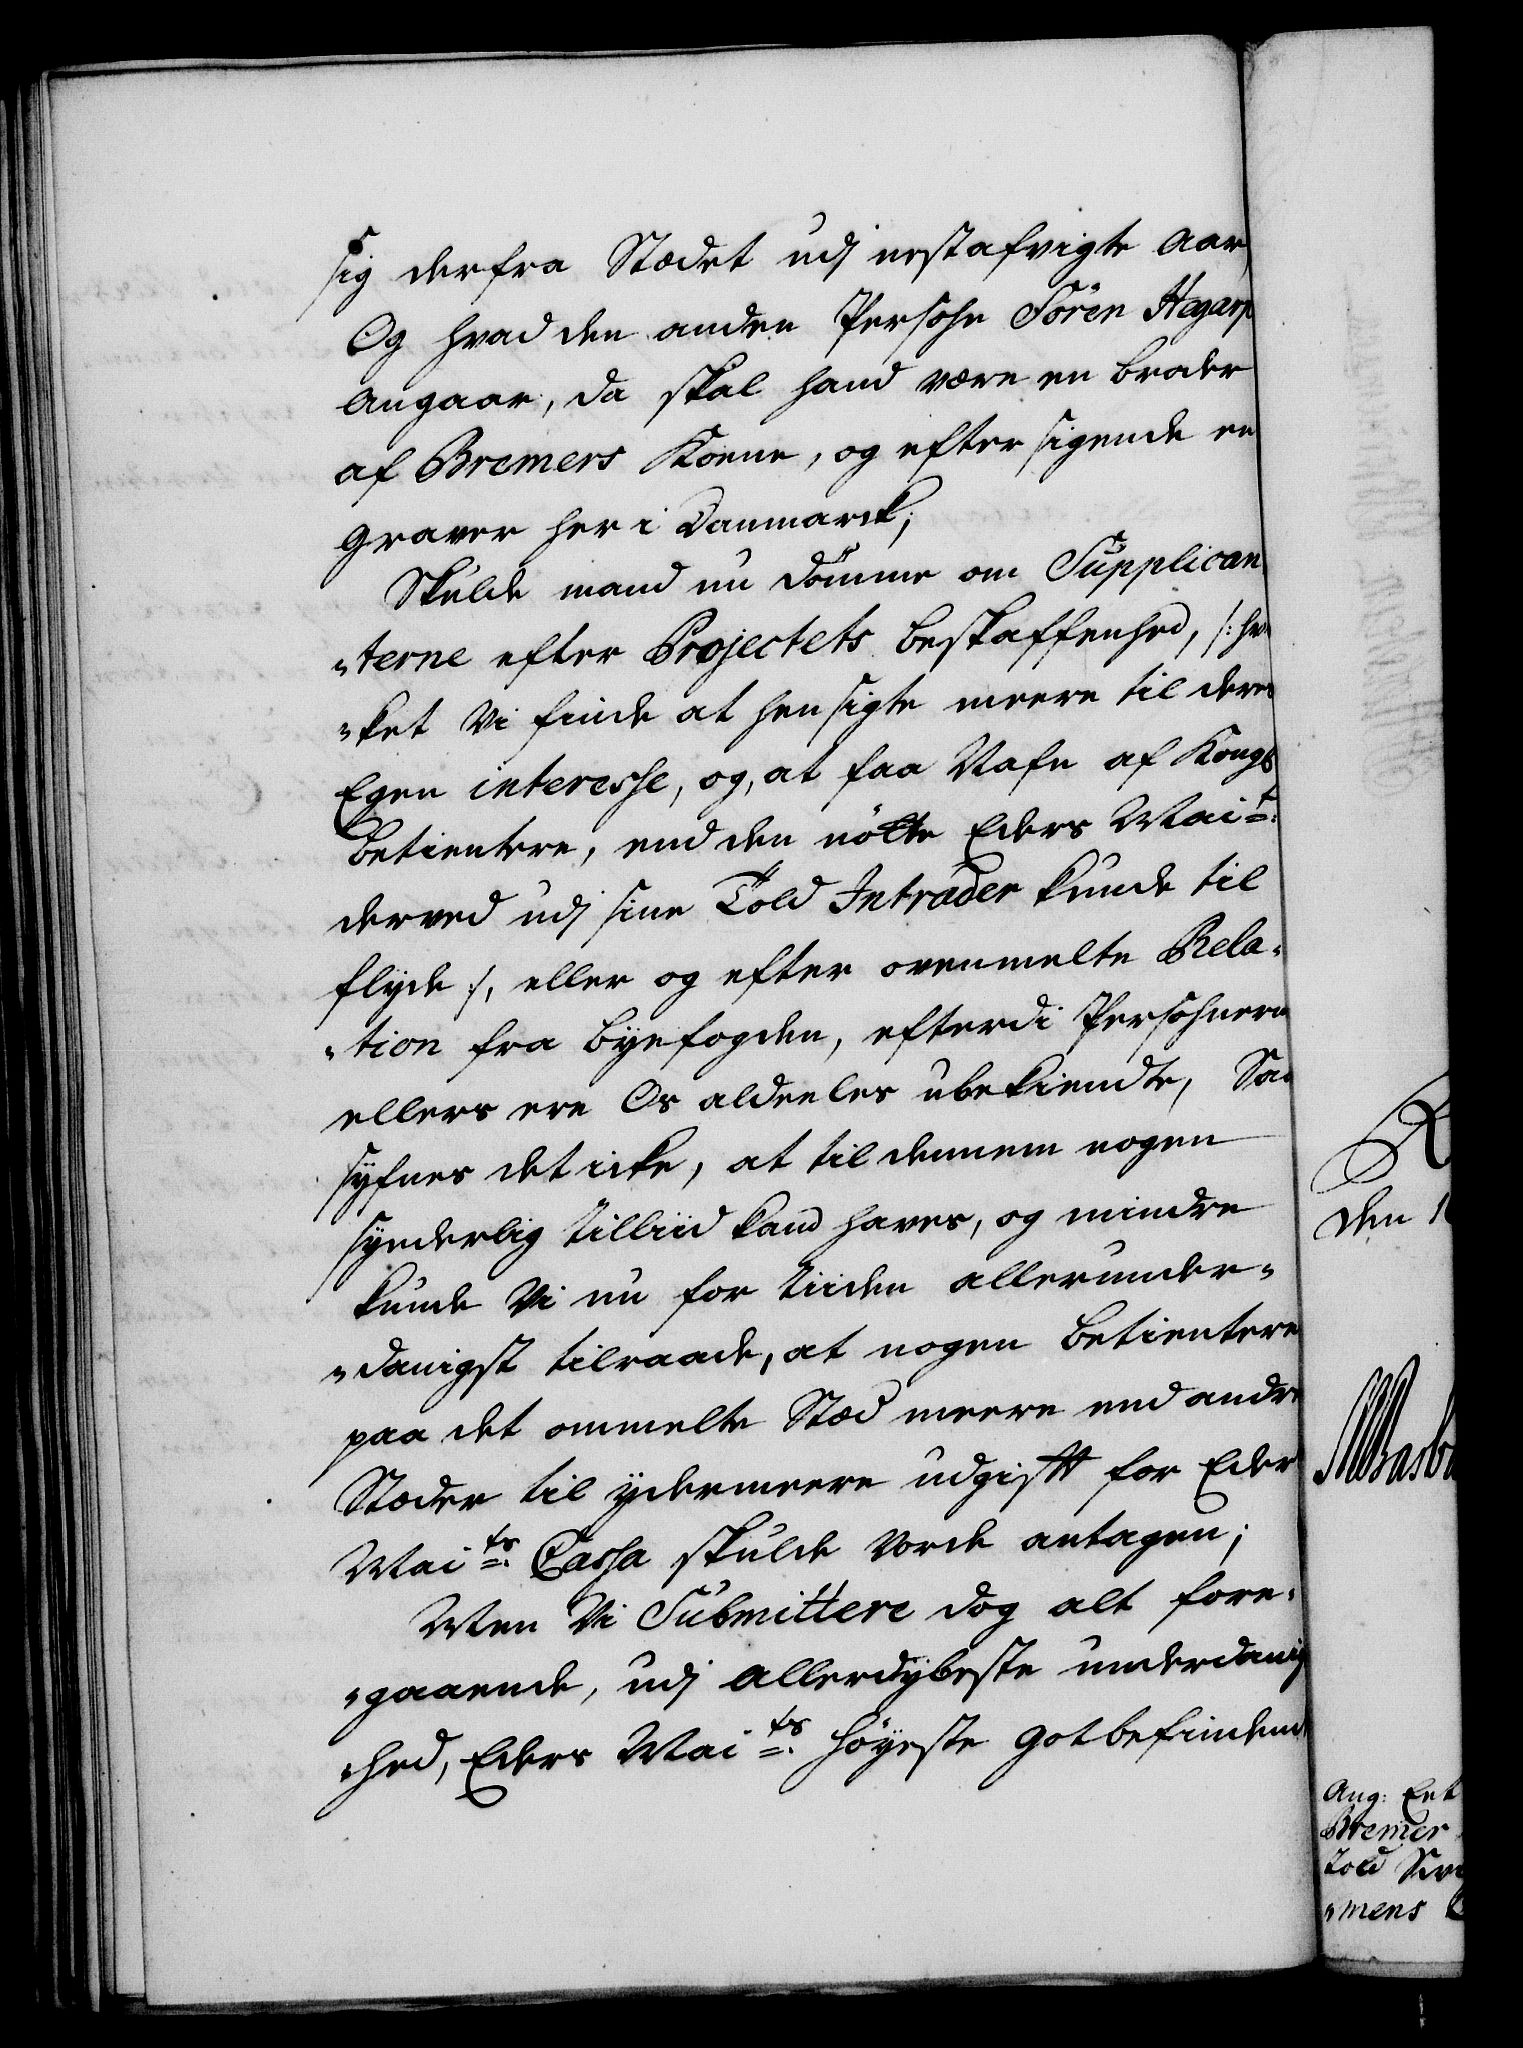 sig derfra Stædet udj nestafvigte Aar,
Og hvad den anden Persohn Sören Hegarp
angaar, da skal hand være en broder
af Bremers Kone, og efter sigende en
graver her i Danmarck;
Skulde mand nu dömme om Supplican
"terne efter Projectets beskaffenhed, /: hvi
"ket Vi finde at hensigte meere til deres
Egen interesse, og, at faa Nafn af Kongl
betientere, end den nötte Eders Mait:
derved udj sine Told Intrader kunde til
flyde :/, eller og efter ovenmelte Rela-
"tion fra Byefogden, efterdi Persohnern
ellers ere Os aldeeles ubekiendte, Saa
syfnes det icke, at til dennem nogen
synderlig tilliid kand haves, og mindre
kunde Vi nu for tiiden allerunder-
"danigst tilraade, at nogen betientere
paa det ommelte Stæd meere end andre
Stæder til ydermeere udgift for Eders
Maits: Cassa skulde vorde antagen;
Men Vi Submittere dog alt fore-
"gaaende, udj allerdybeste underdanig
"hed, Eders Maits: höyeste gotbefindend
den 1
Ang: Eet
Bremer
Told
"mens